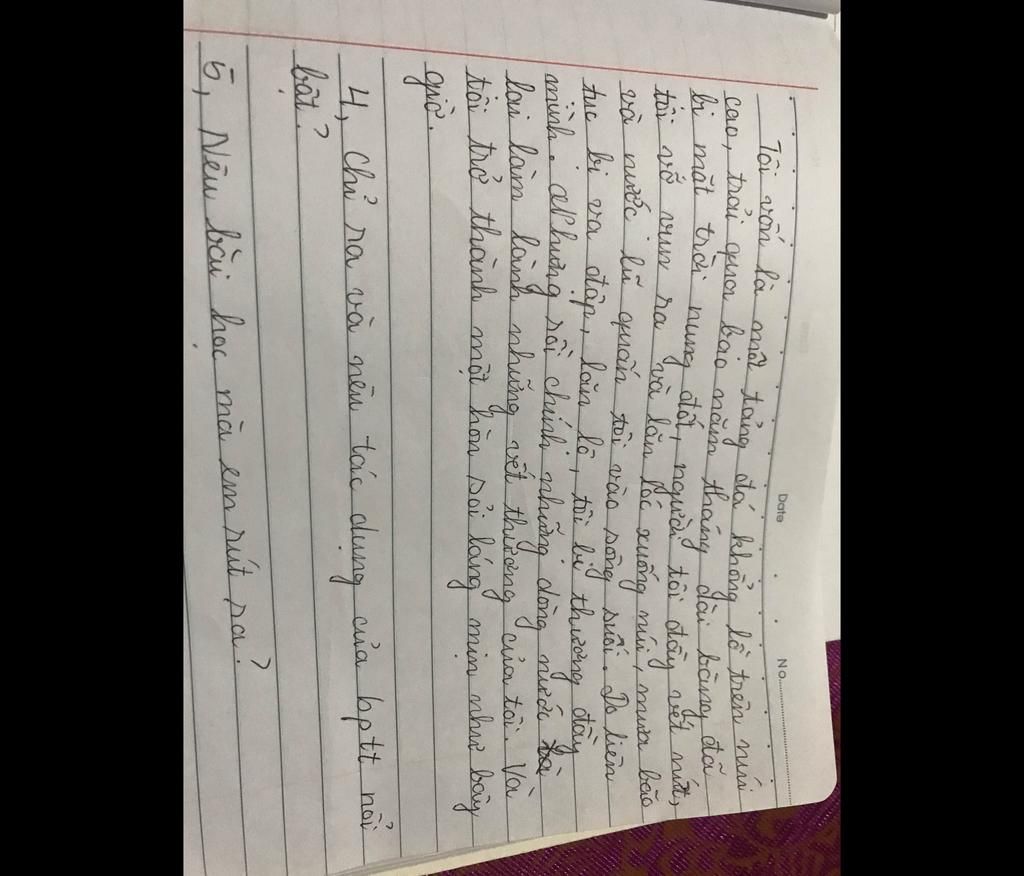 Date
No.
Tôi vốn là một tảng đá khổng lồ trên núi
cao, trải qua bao năm tháng dài bằng đã
bị mặt trời nung đốt, người tôi đầy vết nứt,
tôi vỡ vụn ra và lăn lóc xuống núi, mưa bão
và nước lũ quấn tôi vào sông suối. Do liên
tục bị va đập, lăn lộ, tôi bị thương đầy
mình. Nhưng rồi chính những dòng nước
lại làm lành những vết thương của tôi. Và
tôi trở thành một hòn sỏi láng mịn như bây
giờ.
4, Chỉ ra và nêu tác dụng của bptt nổi
bật?
5, Nêu bài học mà em rút ra?